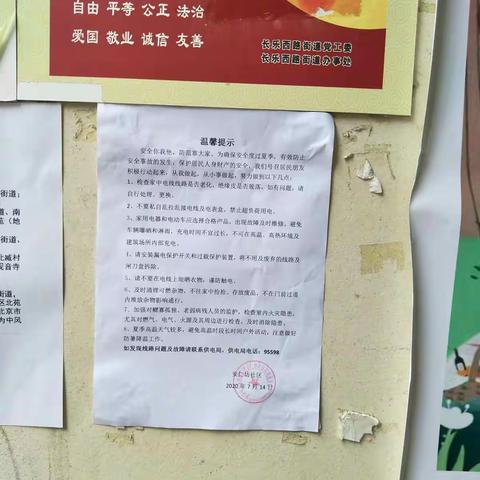 自由 平等 公正 法治
爱国 敬业 诚信 友善
长乐西路街道党工委
长乐西路街道办事处
温馨提示
安全你我他，防范靠大家，为确保安全度过夏季，有效防止
安全事故的发生，保护居民人身财产的安全，我们号召居民朋友
积极行动起来，从我做起，从小事做起，努力做到以下几点：
1、检查家中电线线路是否老化，绝缘皮是否披落，如有问题，请
自行处理、更换。
2、不要私自乱拉乱接电线及电表盒，禁止超负荷用电。
3、家用电器和电动车应选择合格产品，出现故障及时维修，避免
车辆曝晒和淋雨，充电时间不宜过长，不可在高温、高热环境及
建筑场所内部充电。
1、请安装漏电保护开关和过载保护装置，将不用及废弃的线路及
闸刀盒拆除。
5、请不要在电线上晾晒衣物，谨防触电。
6、及时清理可燃杂物，不往家中捡拾、存放废品，不在门前过道
内堆放杂物影响通行。
7、加强对鳏寡孤独、老弱病残人员的监护，检查室内火灾隐患，
尤其对燃气、电气、火源及其周边进行检查，及时消除隐患。
8、夏季高温天气较多，避免高温时段长时间户外活动，注意做好
防暑降温工作。
如发现线路问题及故障请联系供电局，供电局电话：95598
安仁坊社区
2020 年 7 月 14 日
街道：
道、南
苑（地
街道、
北臧村
观音寺
街道，
区北苑
北京市
为中风